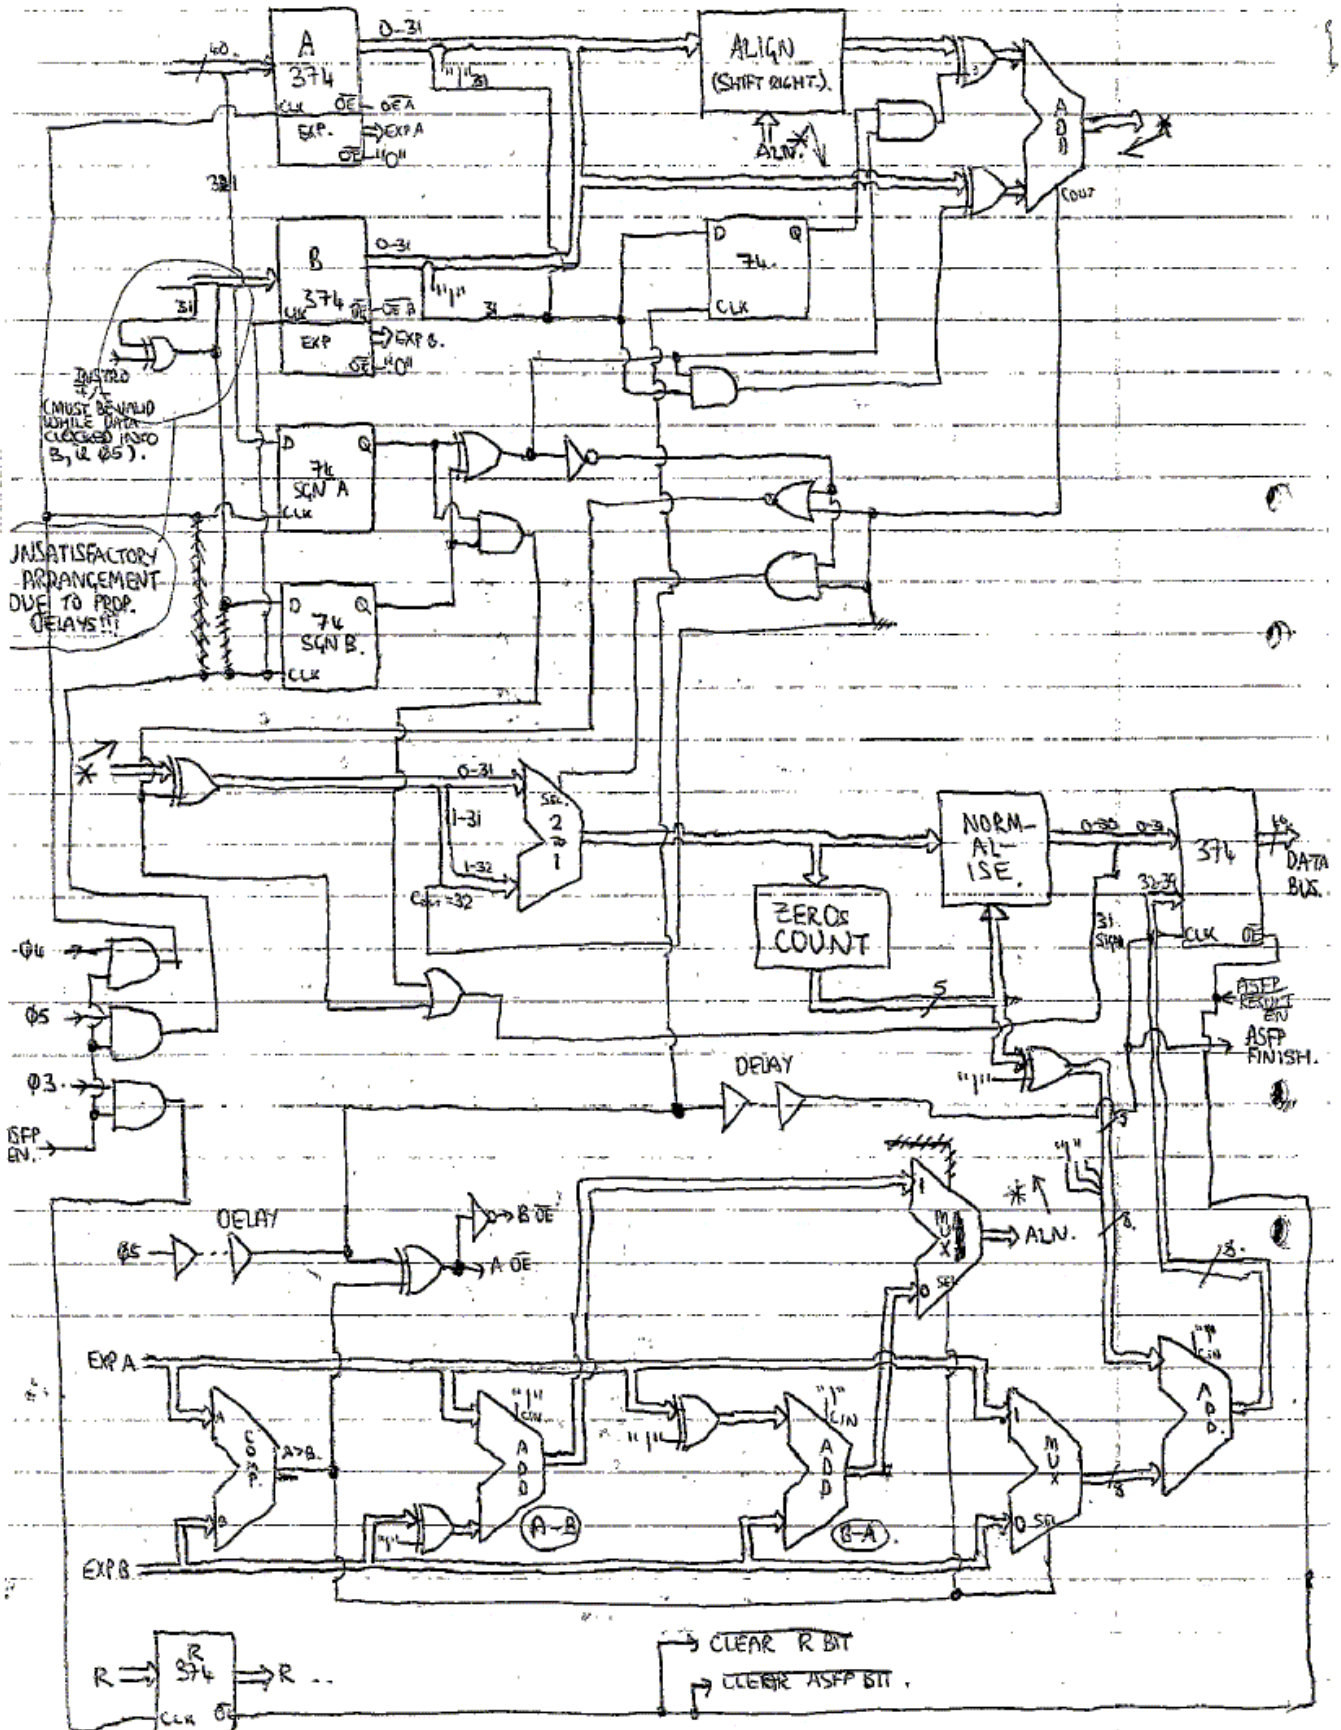 A
374
CLK
OE
OEA
EXP.
EXPA
OE
"0"
40
0-31
"1"
31
ALIGN
(SHIFT RIGHT.).
ALN.
*
ADD
COUT
*
321
B
374
CLK
OE
OE B
EXP
EXP B.
OE
"0"
0-31
"1"
31
31
D
Q
74.
CLK
INSTRO
+/-
(MUST BE VALID
WHILE DATA
CLOCKED INTO
B, ie Ø5).
UNSATISFACTORY
ARRANGEMENT
DUE TO PROP.
DELAYS!!!
D
Q
74
SGN A
CLK
D
Q
74
SGN B.
CLK
*
0-31
1-31
1-32
COUT=32
SEL
2
TO
1
NORM-
AL-
ISE.
ZEROS
COUNT
5
0-30
0-31
32-39
31
SIGN
374
CLK
OE
40
DATA
BUS.
ASFP
RESULT
EN
ASFP
FINISH.
Ø4
Ø5
Ø3.
ASFP
EN.
DELAY
"1"
5
"1"
8.
8.
DELAY
Ø5
B OE
A OE
1
MUX
0 SEL
* ALN.
EXP A
EXP B
A
COMP.
B
A>B.
"1"
CIN
ADD
"1"
A-B
"1"
"1"
CIN
ADD
B-A
1
MUX
0 SEL
8
"1"
CIN
ADD.
R
R
374
CLK
OE
R ..
CLEAR R BIT
CLEAR ASFP BIT.